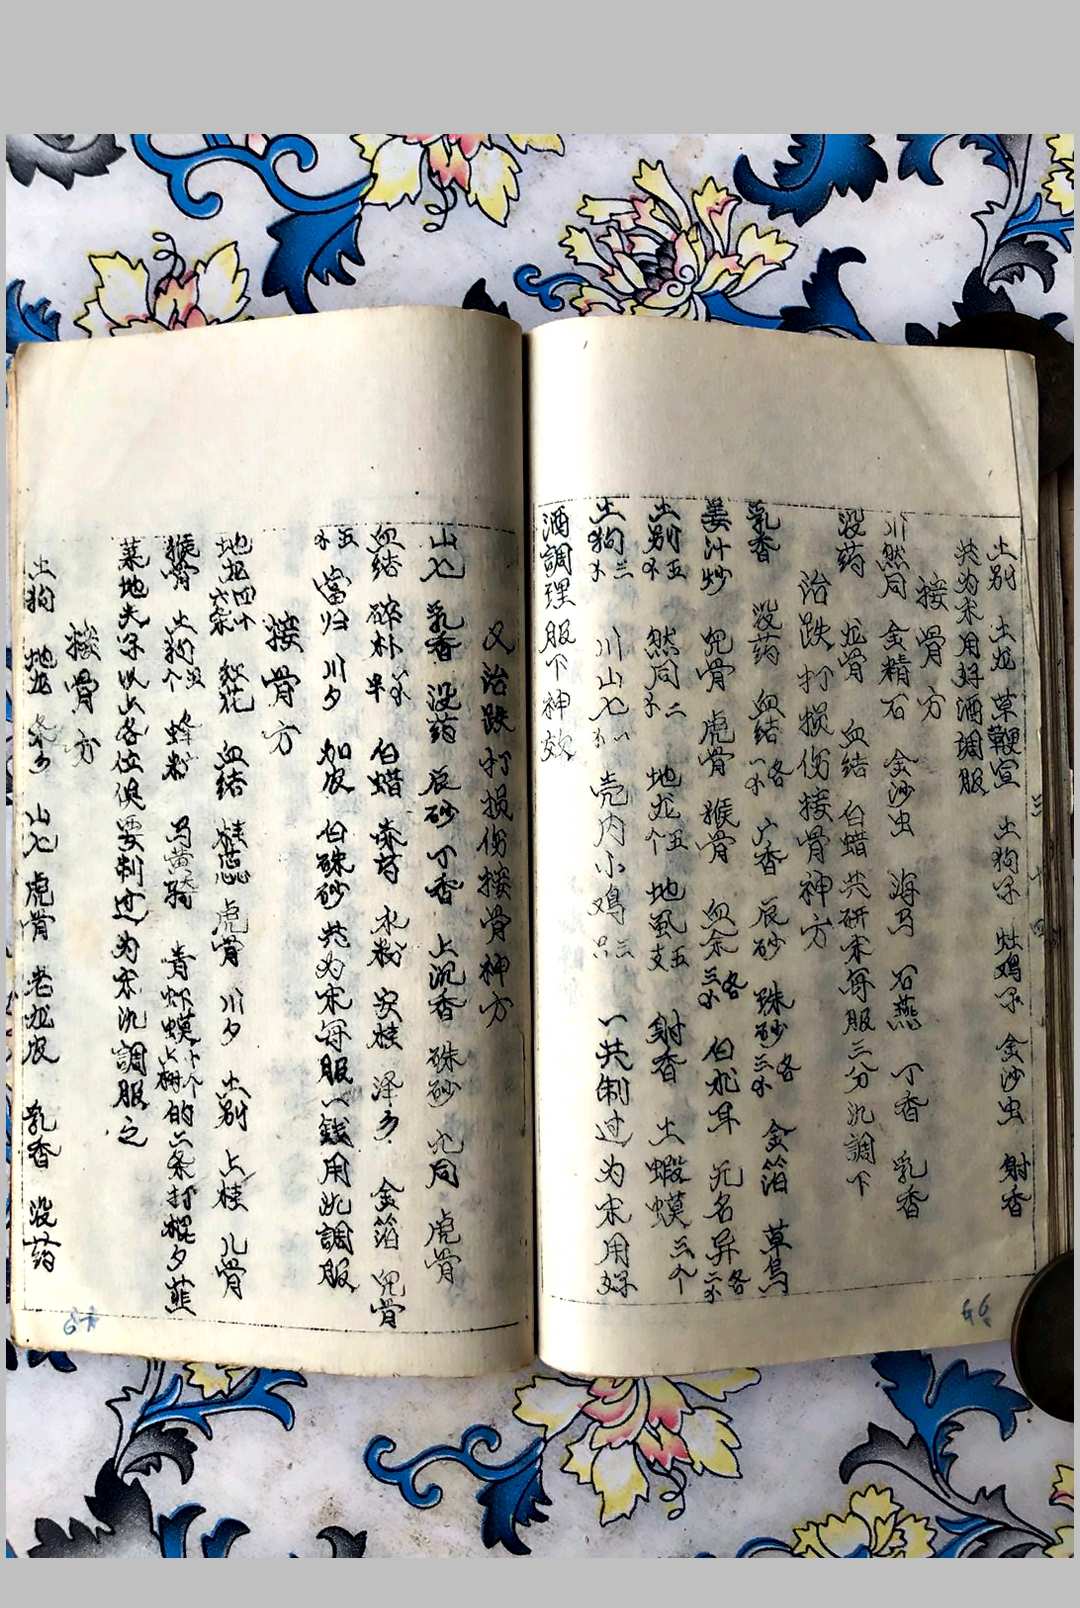 土别 土龙 草鞕宣 土狗子 灶鸡子 金沙虫 射香
共为末用好酒調服
接骨方
川然同 金精石 金沙虫 海马 石燕 丁香 乳香
没药 龙骨 血结 白蜡 共研末每服三分沉調下
治跌打损伤接骨神方
乳香 没药 血结各一钱 广香 辰砂 珠砂各三钱 金箔 草乌
姜汁炒 兕骨 虎骨 猴骨 血余各三钱 白木耳 无名异各二钱
土别五钱 然同二钱 地龙五个 地虱五支 射香 土蝦蟆三个
土狗三钱 川山七 壳内小鸡三只 一共制过为末用好
酒調理服下神效
三十四
66
又治跌打损伤接骨神方
山七 乳香 没药 辰砂 丁香 上沉香 硃砂 六同 虎骨
血结 碎朴 白蜡 赤药 水粉 安桂 泽夕 金箔 兕骨
五钱 當归 川夕 加皮 白硃砂 共为末每服一錢用沉調服
接骨方
地龙四十六条 红花 血结 桂蕊 虎骨 川夕 土别 上桂 儿骨
猴骨 土狗五个 蜂粉 马黄 青虾蟆 上树的 二条打棍夕 韮
菜地夫子以上各位俱要制过为末沉調服之
接骨方
土狗 地龙 山七 虎骨 老龙皮 乳香 没药